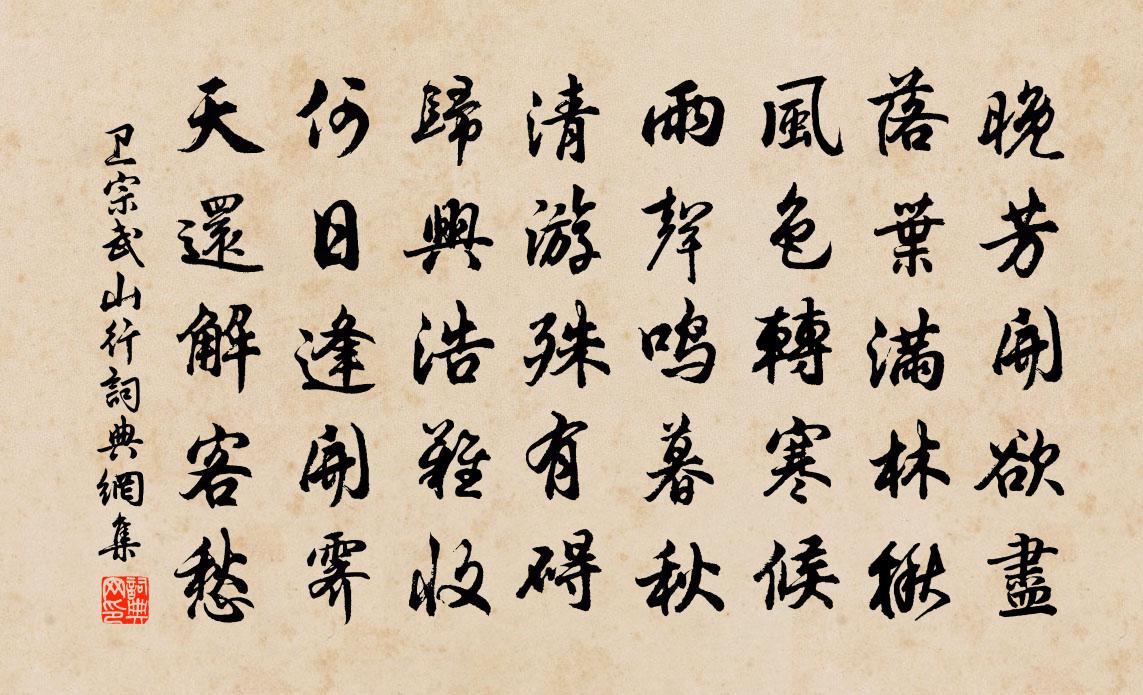 晚芳開欲盡
落葉滿林楸
風色轉寒候
雨聲鳴暮秋
清游殊有碍
歸興浩難收
何日逢開霽
天還解客愁
卫宗武山行詞典網集
詞典网印